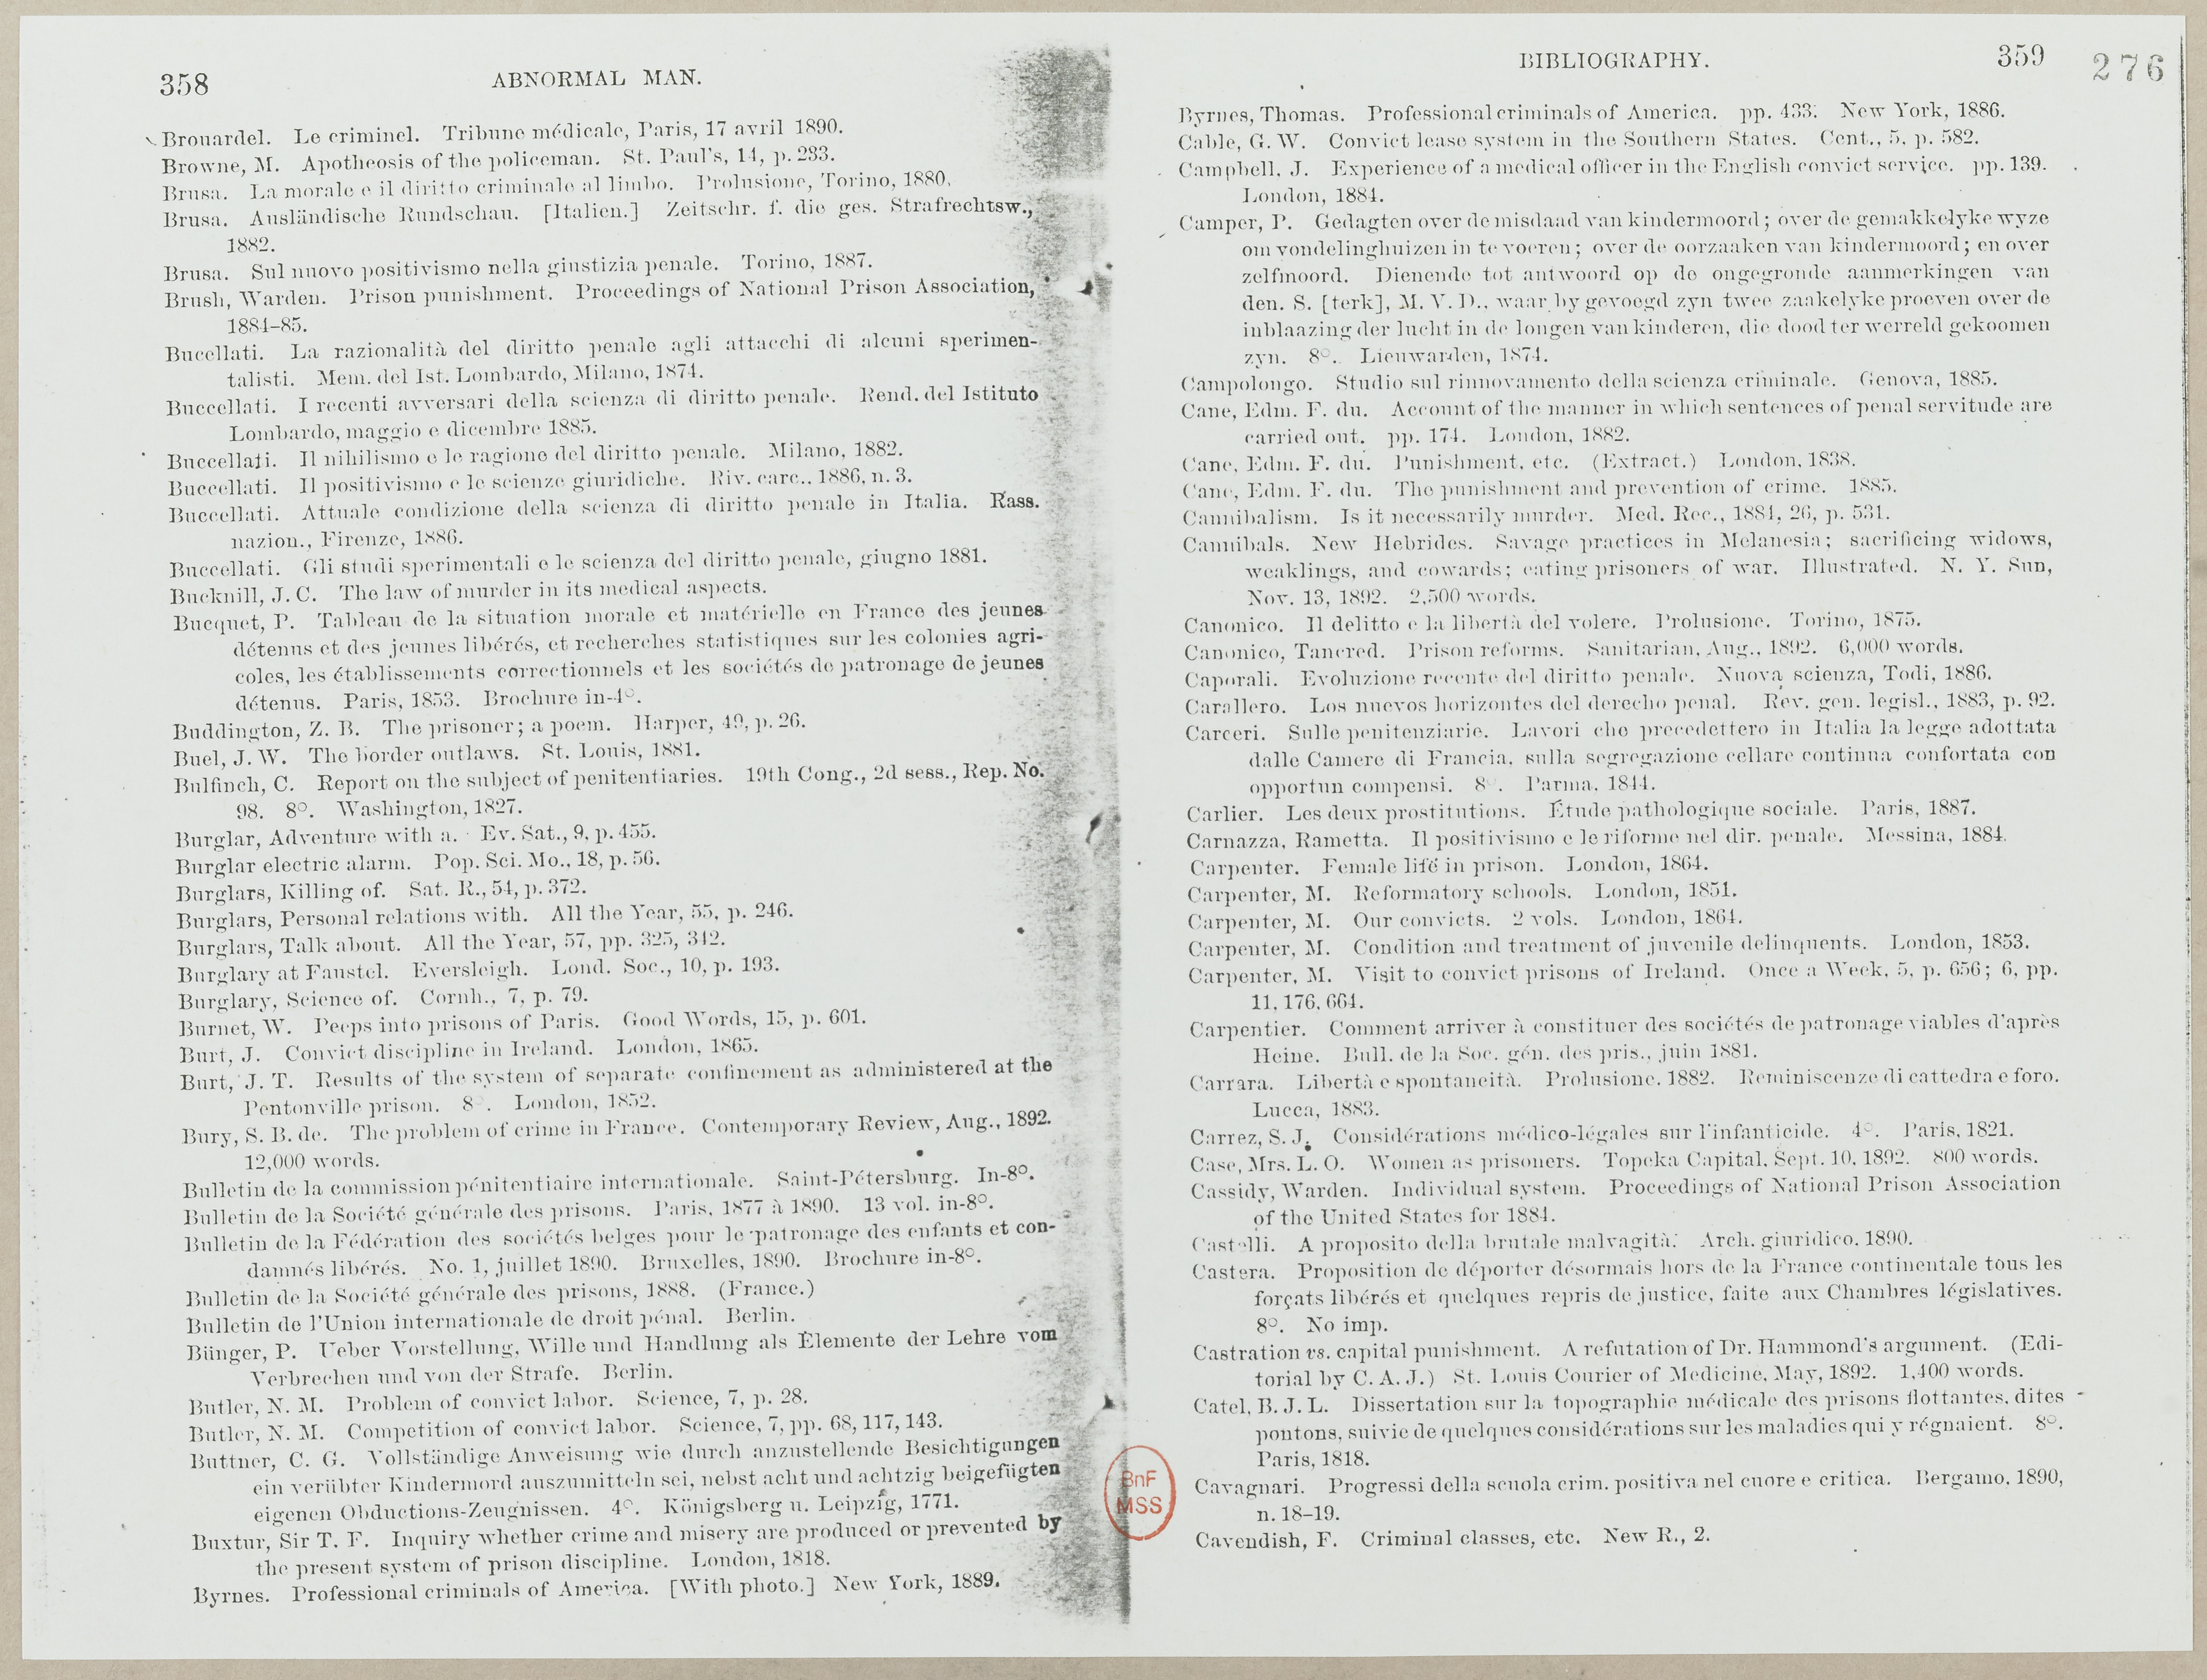 358
ABNORMAL MAN.
Brouardel. Le criminel. Tribune médicale, Paris, 17 avril 1890.
Browne, M. Apotheosis of the policeman. St. Paul's, 14, p. 233.
Brusa. La morale e il diritto criminale al limbo. Prolusione, Torino, 1880.
Brusa. Ausländische Rundschau. [Italien.] Zeitschr. f. die ges. Strafrechtsw.,
1882.
Brusa. Sul nuovo positivismo nella giustizia penale. Torino, 1887.
Brush, Warden. Prison punishment. Proceedings of National Prison Association,
1884–85.
Buccllati. La razionalità del diritto penale agli attacchi di alcuni sperimen-
talisti. Mem. del Ist. Lombardo, Milano, 1874.
Buccellati. I recenti avversari della scienza di diritto penale. Rend. del Istituto
Lombardo, maggio e dicembre 1885.
Buccellati. Il nihilismo e le ragione del diritto penale. Milano, 1882.
Buccellati. Il positivismo e le scienze giuridiche. Riv. carc., 1886, n. 3.
Buccellati. Attuale condizione della scienza di diritto penale in Italia. Rass.
nazion., Firenze, 1886.
Buccellati. Gli studi sperimentali e le scienza del diritto penale, giugno 1881.
Bucknill, J. C. The law of murder in its medical aspects.
Bucquet, P. Tableau de la situation morale et matérielle en France des jeunes
détenus et des jeunes libérés, et recherches statistiques sur les colonies agri-
coles, les établissements correctionnels et les sociétés de patronage de jeunes
détenus. Paris, 1853. Brochure in-4°.
Buddington, Z. B. The prisoner; a poem. Harper, 49, p. 26.
Buel, J. W. The border outlaws. St. Louis, 1881.
Bulfinch, C. Report on the subject of penitentiaries. 19th Cong., 2d sess., Rep. No.
98. 8°. Washington, 1827.
Burglar, Adventure with a. Ev. Sat., 9, p. 455.
Burglar electric alarm. Pop. Sci. Mo., 18, p. 56.
Burglars, Killing of. Sat. R., 54, p. 372.
Burglars, Personal relations with. All the Year, 55, p. 246.
Burglars, Talk about. All the Year, 57, pp. 325, 342.
Burglary at Faustel. Eversleigh. Lond. Soc., 10, p. 193.
Burglary, Science of. Cornh., 7, p. 79.
Burnet, W. Peeps into prisons of Paris. Good Words, 15, p. 601.
Burt, J. Convict discipline in Ireland. London, 1865.
Burt, J. T. Results of the system of separate confinement as administered at the
Pentonville prison. 8°. London, 1852.
Bury, S. B. de. The problem of crime in France. Contemporary Review, Aug., 1892.
12,000 words.
Bulletin de la commission pénitentiaire internationale. Saint-Pétersburg. In-8°.
Bulletin de la Société générale des prisons. Paris, 1877 à 1890. 13 vol. in-8°.
Bulletin de la Fédération des sociétés belges pour le patronage des enfants et con-
damnés libérés. No. 1, juillet 1890. Bruxelles, 1890. Brochure in-8°.
Bulletin de la Société générale des prisons, 1888. (France.)
Bulletin de l'Union internationale de droit pénal. Berlin.
Bünger, P. Ueber Vorstellung, Wille und Handlung als Elemente der Lehre vom
Verbrechen und von der Strafe. Berlin.
Butler, N. M. Problem of convict labor. Science, 7, p. 28.
Butler, N. M. Competition of convict labor. Science, 7, pp. 68, 117, 143.
Buttner, C. G. Vollständige Anweisung wie durch anzustellende Besichtigungen
ein verübter Kindermord auszumitteln sei, nebst acht und achtzig beigefügten
eigenen Obductions-Zeugnissen. 4°. Königsberg u. Leipzig, 1771.
Buxtur, Sir T. F. Inquiry whether crime and misery are produced or prevented by
the present system of prison discipline. London, 1818.
Byrnes. Professional criminals of America. [With photo.] New York, 1889.
BIBLIOGRAPHY.
359
276
Byrnes, Thomas. Professional criminals of America. pp. 433. New York, 1886.
Cable, G. W. Convict lease system in the Southern States. Cent., 5, p. 582.
Campbell, J. Experience of a medical officer in the English convict service. pp. 139.
London, 1884.
Camper, P. Gedagten over de misdaad van kindermoord; over de gemakkelyke wyze
om vondelinghuizen in te voeren; over de oorzaaken van kindermoord; en over
zelfmoord. Dienende tot antwoord op de ongegronde aanmerkingen van
den. S. [terk], M. V. D., waar by gevoegd zyn twee zaakelyke proeven over de
inblaazing der lucht in de longen van kinderen, die dood ter werreld gekoomen
zyn. 8°. Lieuwarden, 1874.
Campolongo. Studio sul rinnovamento della scienza criminale. Genova, 1885.
Cane, Edm. F. du. Account of the manner in which sentences of penal servitude are
carried out. pp. 174. London, 1882.
Cane, Edm. F. du. Punishment, etc. (Extract.) London, 1838.
Cane, Edm. F. du. The punishment and prevention of crime. 1885.
Cannibalism. Is it necessarily murder. Med. Rec., 1884, 26, p. 531.
Cannibals. New Hebrides. Savage practices in Melanesia; sacrificing widows,
weaklings, and cowards; eating prisoners of war. Illustrated. N. Y. Sun,
Nov. 13, 1892. 2,500 words.
Canonico. Il delitto e la libertà del volere. Prolusione. Torino, 1875.
Canonico, Tancred. Prison reforms. Sanitarian, Aug., 1892. 6,000 words.
Caporali. Evoluzione recente del diritto penale. Nuova scienza, Todi, 1886.
Carallero. Los nuevos horizontes del derecho penal. Rev. gen. legisl., 1883, p. 92.
Carceri. Sulle penitenziarie. Lavori che precedettero in Italia la legge adottata
dalle Camere di Francia, sulla segregazione cellare continua confortata con
opportun compensi. 8°. Parma, 1844.
Carlier. Les deux prostitutions. Étude pathologique sociale. Paris, 1887.
Carnazza, Rametta. Il positivismo e le riforme nel dir. penale. Messina, 1884.
Carpenter. Female life in prison. London, 1864.
Carpenter, M. Reformatory schools. London, 1851.
Carpenter, M. Our convicts. 2 vols. London, 1864.
Carpenter, M. Condition and treatment of juvenile delinquents. London, 1853.
Carpenter, M. Visit to convict prisons of Ireland. Once a Week, 5, p. 656; 6, pp.
11, 176, 664.
Carpentier. Comment arriver à constituer des sociétés de patronage viables d'après
Heine. Bull. de la Soc. gén. des pris., juin 1881.
Carrara. Libertà e spontaneità. Prolusione. 1882. Reminiscenze di cattedra e foro.
Lucca, 1883.
Carrez, S. J. Considérations médico-légales sur l'infanticide. 4°. Paris, 1821.
Case, Mrs. L. O. Women as prisoners. Topeka Capital, Sept. 10, 1892. 800 words.
Cassidy, Warden. Individual system. Proceedings of National Prison Association
of the United States for 1884.
Castelli. A proposito della brutale malvagità. Arch. giuridico. 1890.
Castera. Proposition de déporter désormais hors de la France continentale tous les
forçats libérés et quelques repris de justice, faite aux Chambres législatives.
8°. No imp.
Castration vs. capital punishment. A refutation of Dr. Hammond's argument. (Edi-
torial by C. A. J.) St. Louis Courier of Medicine, May, 1892. 1,400 words.
Catel, B. J. L. Dissertation sur la topographie médicale des prisons flottantes, dites
pontons, suivie de quelques considérations sur les maladies qui y régnaient. 8°.
Paris, 1818.
Cavagnari. Progressi della scuola crim. positiva nel cuore e critica. Bergamo, 1890,
n. 18–19.
Cavendish, F. Criminal classes, etc. New R., 2.
BnF
MSS